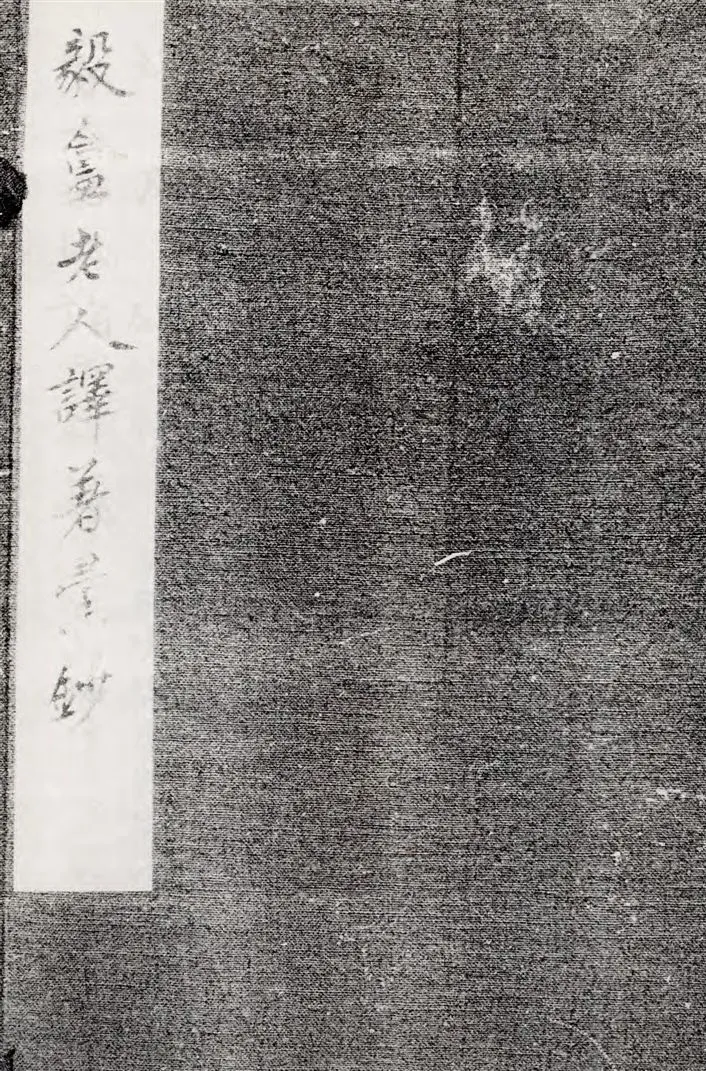 毅盦老人譯著鈔